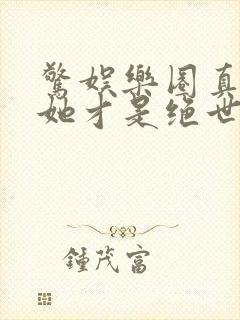 驚娛樂圈真
她才是絕世
鍾茂富